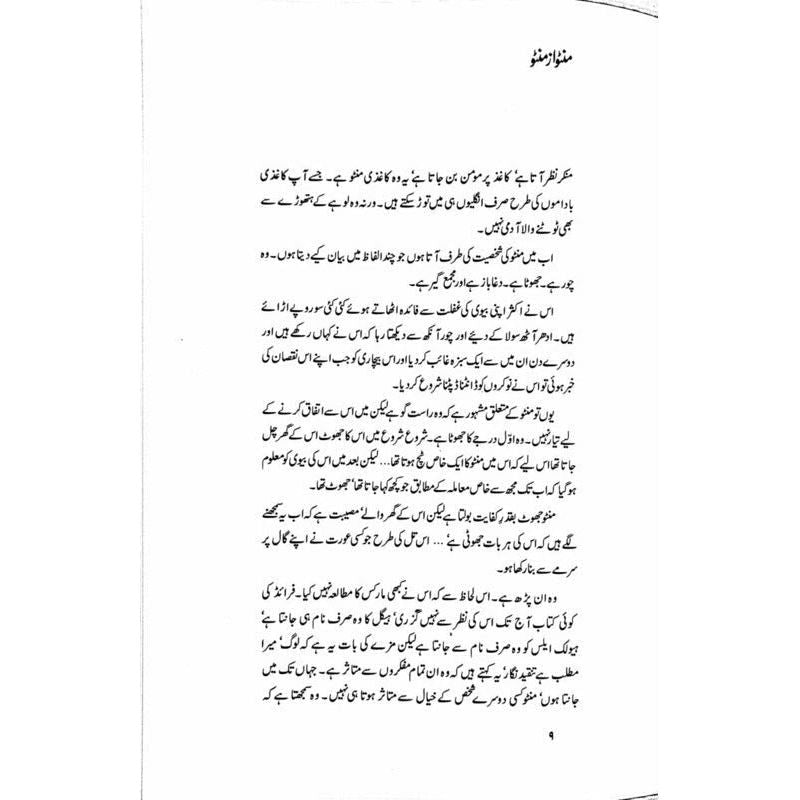 منٹو از منٹو
منکر نظر آتا ہے‘ کاغذ پر مومن بن جاتا ہے‘ یہ وہ کاغذی منٹو ہے۔ جسے آپ کاغذی
باداموں کی طرح صرف انگلیوں ہی میں توڑ سکتے ہیں۔ ورنہ وہ لوہے کے ہتھوڑے سے
بھی ٹوٹنے والا آدمی نہیں۔
اب میں منٹو کی شخصیت کی طرف آتا ہوں جو چند الفاظ میں بیان کیے دیتا ہوں۔ وہ
چور ہے۔ جھوٹا ہے۔ دغاباز ہے اور مجمع گیر ہے۔
اس نے اکثر اپنی بیوی کی غفلت سے فائدہ اٹھاتے ہوئے کئی کئی سو روپے اڑائے
ہیں۔ ادھر آٹھ سو لا کے دیئے اور چور آنکھ سے دیکھتا رہا کہ اس نے کہاں رکھے ہیں اور
دوسرے دن ان میں سے ایک سبزہ غائب کر دیا اور اس بیچاری کو جب اپنے اس نقصان کی
خبر ہوئی تو اس نے نوکروں کو ڈانٹنا ڈپٹنا شروع کر دیا۔
یوں تو منٹو کے متعلق مشہور ہے کہ وہ راست گو ہے لیکن میں اس سے اتفاق کرنے کے
لیے تیار نہیں۔ وہ اوّل درجے کا جھوٹا ہے۔ شروع شروع میں اس کا جھوٹ اس کے گھر چل
جاتا تھا اس لیے کہ اس میں منٹو کا ایک خاص ٹچ ہوتا تھا... لیکن بعد میں اس کی بیوی کو معلوم
ہو گیا کہ اب تک مجھ سے خاص معاملہ کے مطابق جو کچھ کہا جاتا تھا‘ جھوٹ تھا۔
منٹو جھوٹ بقدرِ کفایت بولتا ہے لیکن اس کے گھر والے‘ مصیبت ہے کہ اب یہ سمجھنے
لگے ہیں کہ اس کی ہر بات جھوٹی ہے‘ ... اس تل کی طرح جو کسی عورت نے اپنے گال پر
سرمے سے بنا رکھا ہو۔
وہ ان پڑھ ہے۔ اس لحاظ سے کہ اس نے کبھی مارکس کا مطالعہ نہیں کیا۔ فرائڈ کی
کوئی کتاب آج تک اس کی نظر سے نہیں گزری‘ ہیگل کا وہ صرف نام ہی جانتا ہے‘
ہیولک ایلس کو وہ صرف نام سے جانتا ہے لیکن مزے کی بات یہ ہے کہ لوگ‘ میرا
مطلب ہے تنقید نگار‘ یہ کہتے ہیں کہ وہ ان تمام مفکروں سے متاثر ہے۔ جہاں تک میں
جانتا ہوں‘ منٹو کسی دوسرے شخص کے خیال سے متاثر ہوتا ہی نہیں۔ وہ سمجھتا ہے کہ
۹